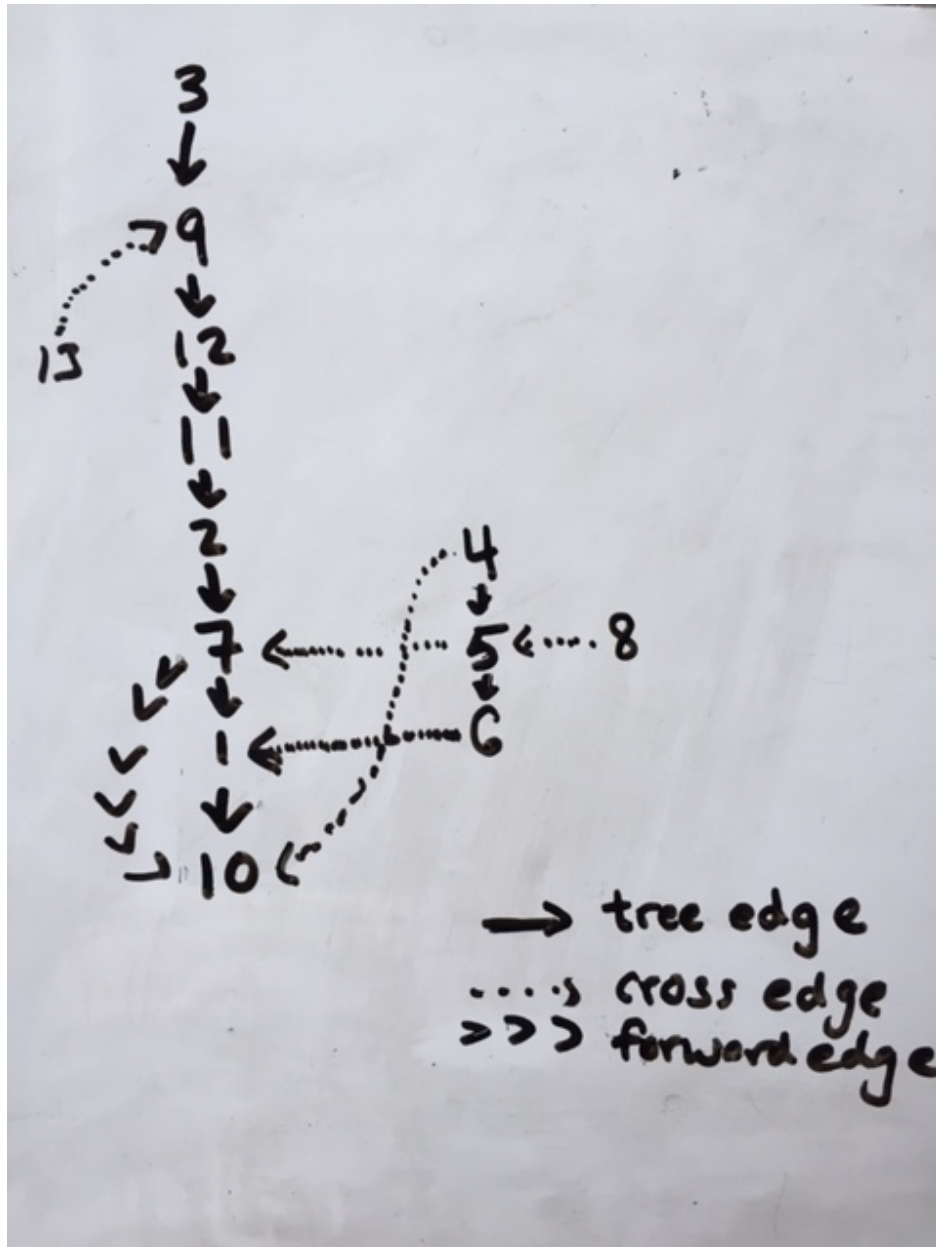 3
9
13
12
11
2
4
7
5
8
1
6
10
tree edge
cross edge
forward edge